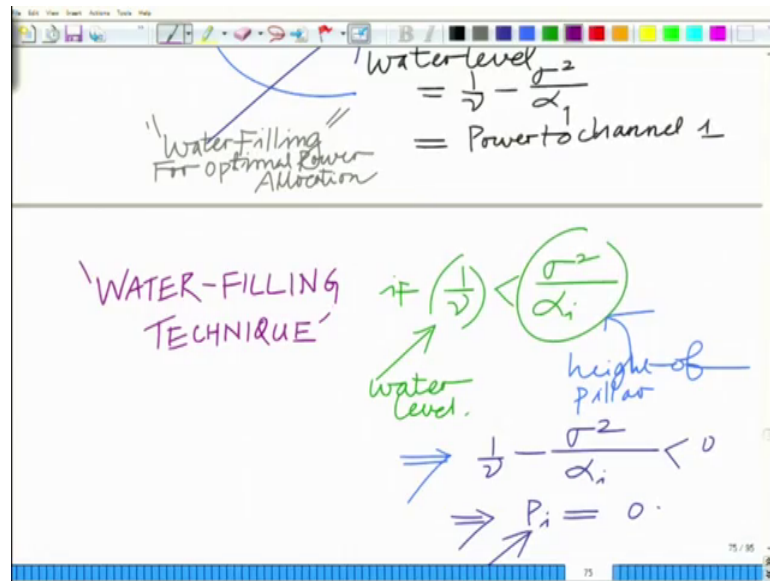 Edit View Insert Actions Tools Help
Water level
= 1/ν − σ²/α₁
= Power to channel 1
"Water-Filling"
For Optimal Power
Allocation
'WATER-FILLING
TECHNIQUE'
if (1/ν) < σ²/αᵢ
water
level.
height of
pillar
⇒ 1/ν − σ²/αᵢ < 0
⇒ Pᵢ = 0.
75 / 95
75